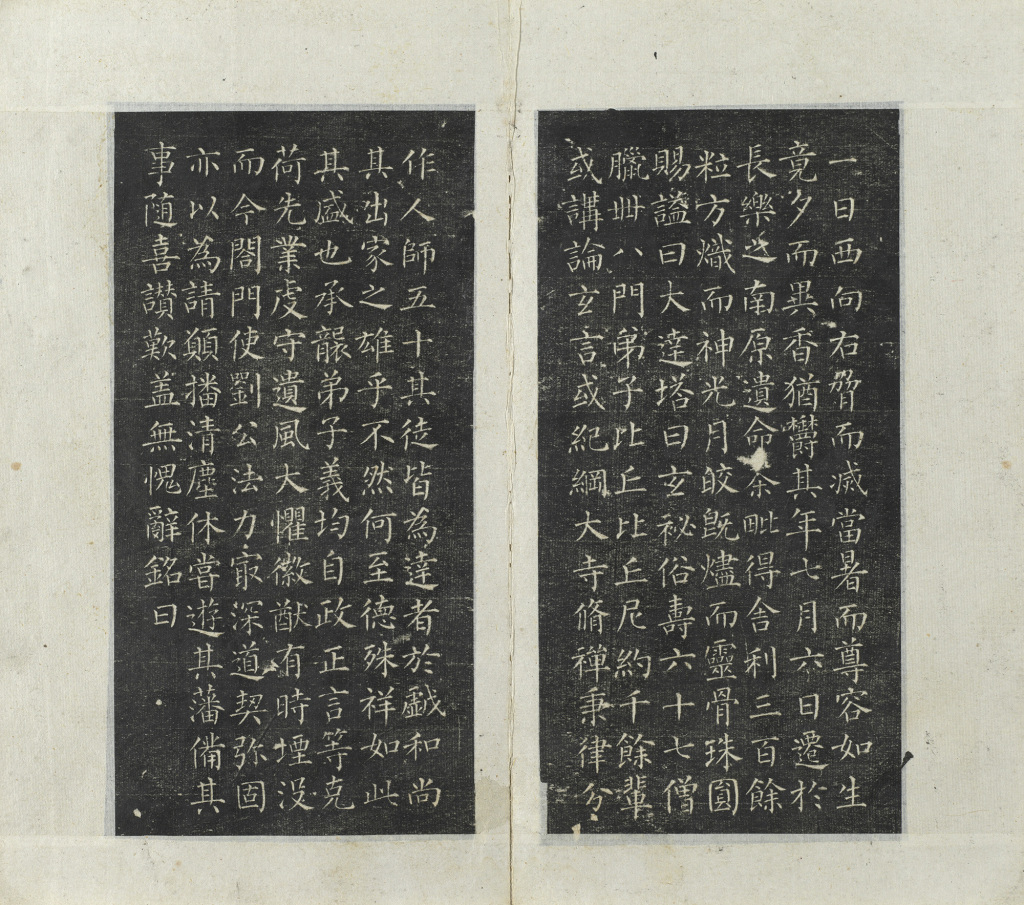 一日西向右脅而滅當暑而尊容如生
竟夕而異香猶欝其年七月六日遷於
長樂之南原遺命荼毗得舍利三百餘
粒方熾而神光月皎既燼而靈骨珠圓
賜謚曰大達塔曰玄秘俗壽六十七僧
臘卌八門弟子比丘比丘尼約千餘輩
或講論玄言或紀綱大寺脩禪秉律分
作人師五十其徒皆為達者於戲和尚
其出家之雄乎不然何至德殊祥如此
其盛也承襲弟子義均自政正言等克
荷先業虔守遺風大懼徽猷有時堙没
而今閤門使劉公法力㝡深道契弥固
亦以為請願播清塵休嘗遊其藩備其
事随喜讃歎盖無愧辭銘曰